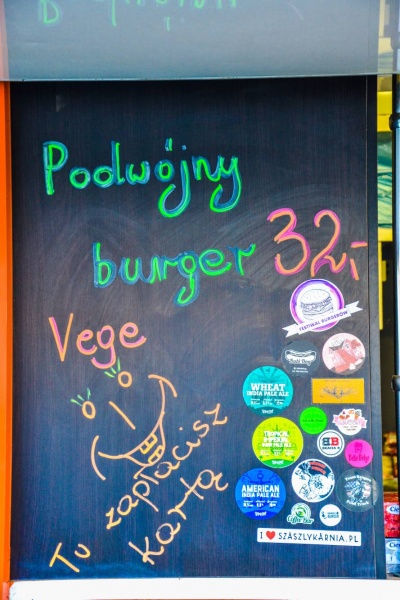 Podwójny
burger 32,-
Vege
Tu zapłacisz
kartą
FESTIWAL BURGERÓW
WHEAT
INDIA PALE ALE
TROPICAL
IMPERIAL
INDIA PALE ALE
AMERICAN
INDIA PALE ALE
BB
I ♥ SZASZLYKARNIA.PL